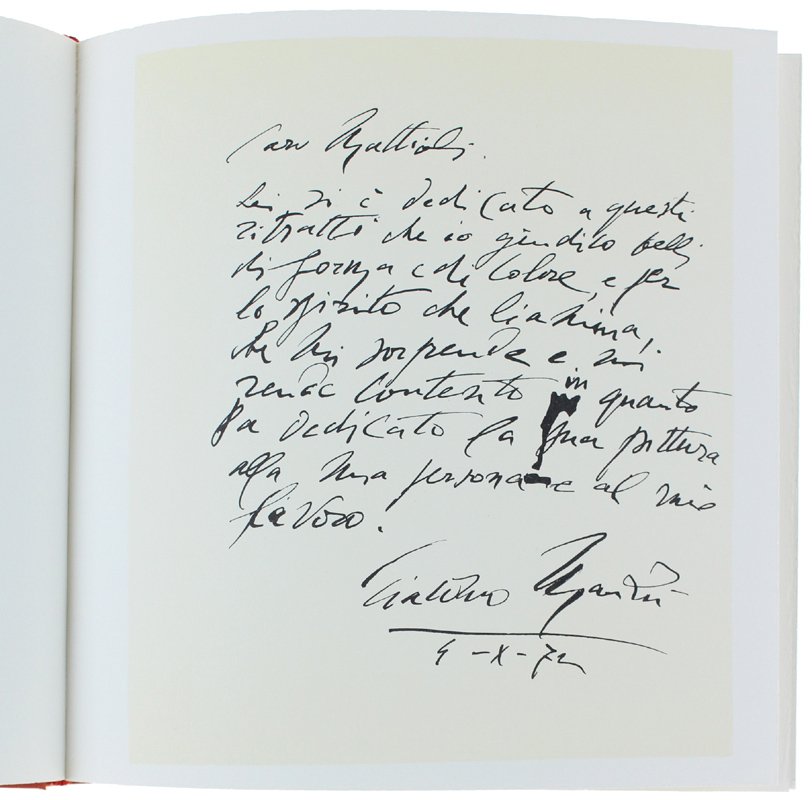 Caro Mattioli.
Lei si è dedicato a questi
ritratti che io giudico belli
di forma e di colore, e per
lo spirito che li anima,
che mi sorprende e mi
rende contento in quanto
ha dedicato la sua pittura
alla mia persona e al mio
lavoro.
Giacomo Manzù
4-X-72